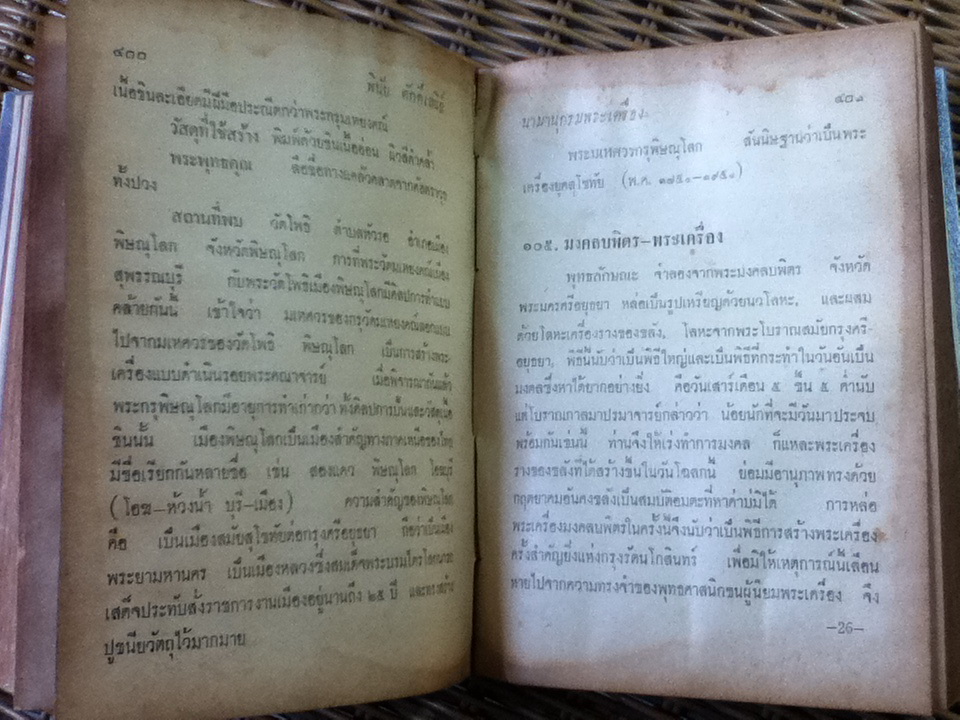 ๔๐๐
พินัย ศักดิ์เสนีย์
เนื้อชินละเอียดมีฝีมือประณีตกว่าพระกรุมเหยงคณ์
วัสดุที่ใช้สร้าง พิมพ์ด้วยชินเนื้ออ่อน ผิวสีดำคล้ำ
พระพุทธคุณ ลือชื่อทางแคล้วคลาดจากศัสตราวุธ
ทั้งปวง
สถานที่พบ วัดโพธิ ตำบลหัวรอ อำเภอเมือง
พิษณุโลก จังหวัดพิษณุโลก การที่พระวัดมเหยงคณ์เมือง
สุพรรณบุรี กับพระวัดโพธิเมืองพิษณุโลกมีศิลปการทำแบบ
คล้ายกันนี้ เข้าใจว่า มเหศวรของกรุวัดมเหยงคณ์ลอกแบบ
ไปจากมเหศวรของวัดโพธิ พิษณุโลก เป็นการสร้างพระ
เครื่องแบบดำเนินรอยพระคณาจารย์ เมื่อพิจารณากันแล้ว
พระกรุพิษณุโลกมีอายุการทำเก่ากว่า ทั้งศิลปการปั้นและวัสดุเนื้อ
ชินนั้น เมืองพิษณุโลกเป็นเมืองสำคัญทางภาคเหนือของไทย
มีชื่อเรียกกันหลายชื่อ เช่น สองแคว พิษณุโลก โอฆบุรี
(โอฆ—ห้วงน้ำ บุรี—เมือง) ความสำคัญของพิษณุโลก
คือ เป็นเมืองสมัยสุโขทัยต่อกรุงศรีอยุธยา ถือว่าเป็นเมือง
พระยามหานคร เป็นเมืองหลวงซึ่งสมเด็จพระบรมไตรโลกนารถ
เสด็จประทับสั่งราชการงานเมืองอยู่นานถึง ๒๕ ปี และทรงสร้าง
ปูชนียวัตถุไว้มากมาย
นามานุกรมพระเครื่อง
๔๐๑
พระมเหศวรกรุพิษณุโลก สันนิษฐานว่าเป็นพระ
เครื่องยุคสุโขทัย (พ.ศ. ๑๗๕๐—๑๙๕๐)
๑๐๕. มงคลบพิตร—พระเครื่อง
พุทธลักษณะ จำลองจากพระมงคลบพิตร จังหวัด
พระนครศรีอยุธยา หล่อเป็นรูปเหรียญด้วยนวโลหะ, และผสม
ด้วยโลหะเครื่องรางของขลัง, โลหะจากพระโบราณสมัยกรุงศรี-
อยุธยา, พิธีนี้นับว่าเป็นพิธีใหญ่และเป็นพิธีที่กระทำในวันอันเป็น
มงคลซึ่งหาได้ยากอย่างยิ่ง คือวันเสาร์เดือน ๕ ขึ้น ๕ ค่ำนับ
แต่โบราณกาลมาปรมาจารย์กล่าวว่า น้อยนักที่จะมีวันมาประจบ
พร้อมกันเช่นนี้ ท่านจึงให้เร่งทำการมงคล ก็แหละพระเครื่อง
รางของขลังที่ได้สร้างขึ้นในวันโอสกนี้ ย่อมมีอานุภาพทรงด้วย
กฤตยาคมอันคงขลังเป็นสมบัติอมตะที่หาค่าบ่มิได้ การหล่อ
พระเครื่องมงคลบพิตรในครั้งนี้จึงนับว่าเป็นพิธีการสร้างพระเครื่อง
ครั้งสำคัญยิ่งแห่งกรุงรัตนโกสินทร์ เพื่อมิให้เหตุการณ์นี้เลือน
หายไปจากความทรงจำของพุทธศาสนิกชนผู้นิยมพระเครื่อง จึง
—26—